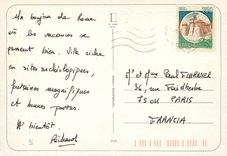 Un bonjour de Rome
où les vacances se
passent bien. Ville riche
en sites archéologiques,
fontaines magnifiques
et bonnes pastas.
A bientôt.
Richard
Mr et Mme Paul
36, rue Faidherbe
75011 PARIS
FRANCIA